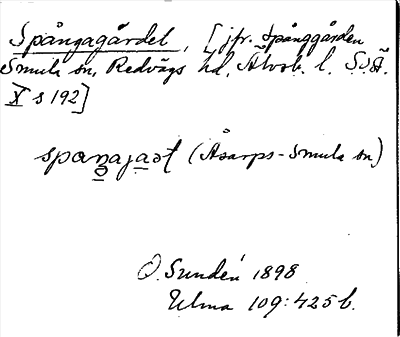 Spångagärdet, [jfr. Spånggården
Smula sn, Redvägs hd, Älvsb. l. S.O.Ä.
X s 192]
spaŋajaət (Åsarps-Smula sn)
O. Sundén 1898
Ulma 109:425b.